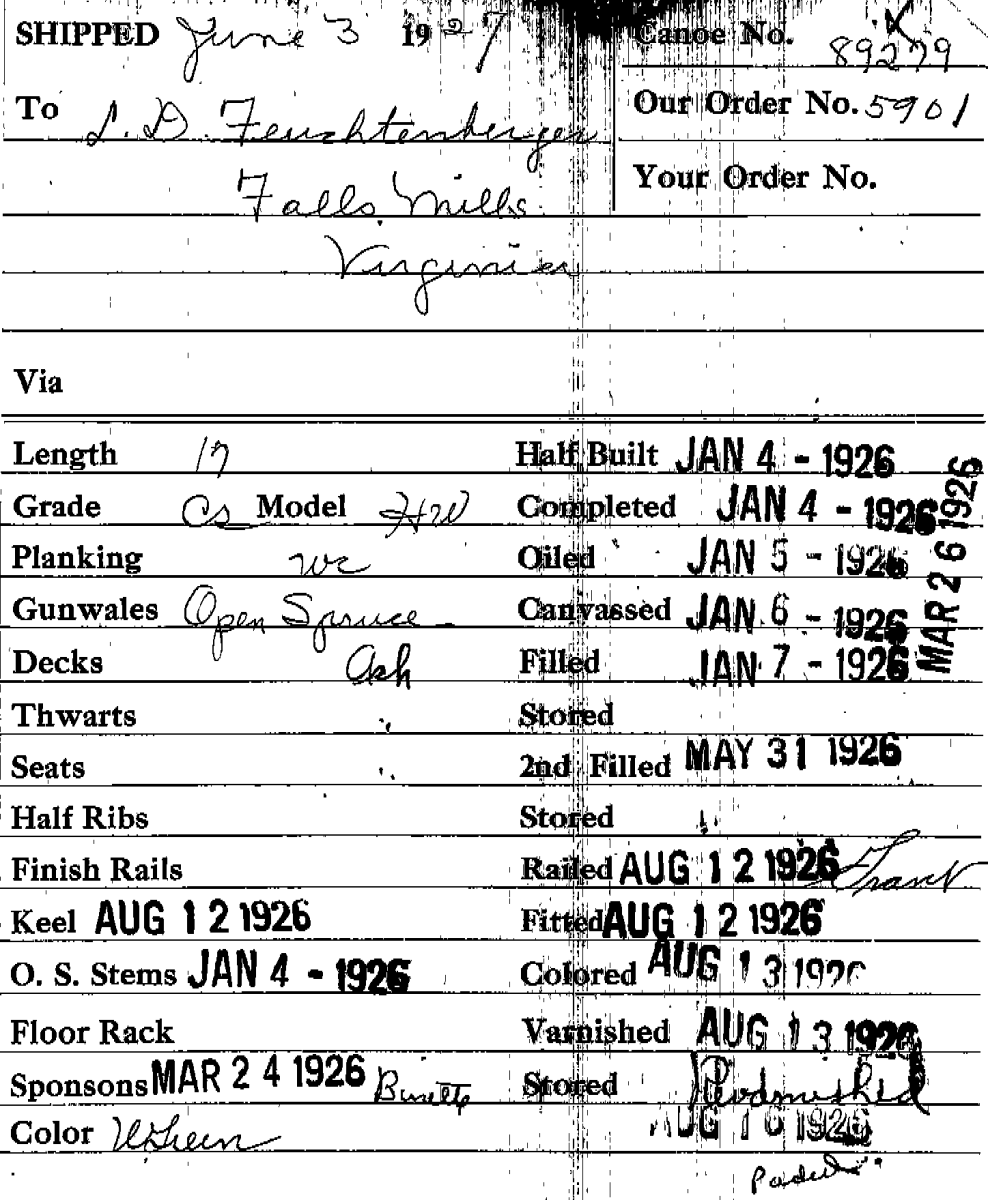 SHIPPED June 3 1927 Canoe No. 89279
To L. D. Feuchtenberger Our Order No. 5901
Falls Mills Your Order No.
Virginia
Via
Length 17 Half Built JAN 4 - 1926
Grade CS Model HW Completed JAN 4 - 1926 MAR 26 1926
Planking WC Oiled JAN 5 - 1926
Gunwales Open Spruce Canvassed JAN 6 - 1926
Decks Ash Filled JAN 7 - 1926
Thwarts " Stored
Seats " 2nd Filled MAY 31 1926
Half Ribs Stored "
Finish Rails Railed AUG 12 1926
Keel AUG 12 1926 Fitted AUG 12 1926
O. S. Stems JAN 4 - 1926 Colored AUG 13 1926
Floor Rack Varnished AUG 13 1926
Sponsons MAR 24 1926 Stored
Color AUG 16 1926